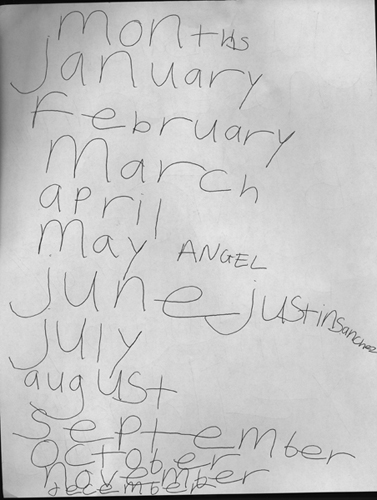 months
January
February
March
april
may ANGEL
June justinsanchez
July
august
September
october
november
december